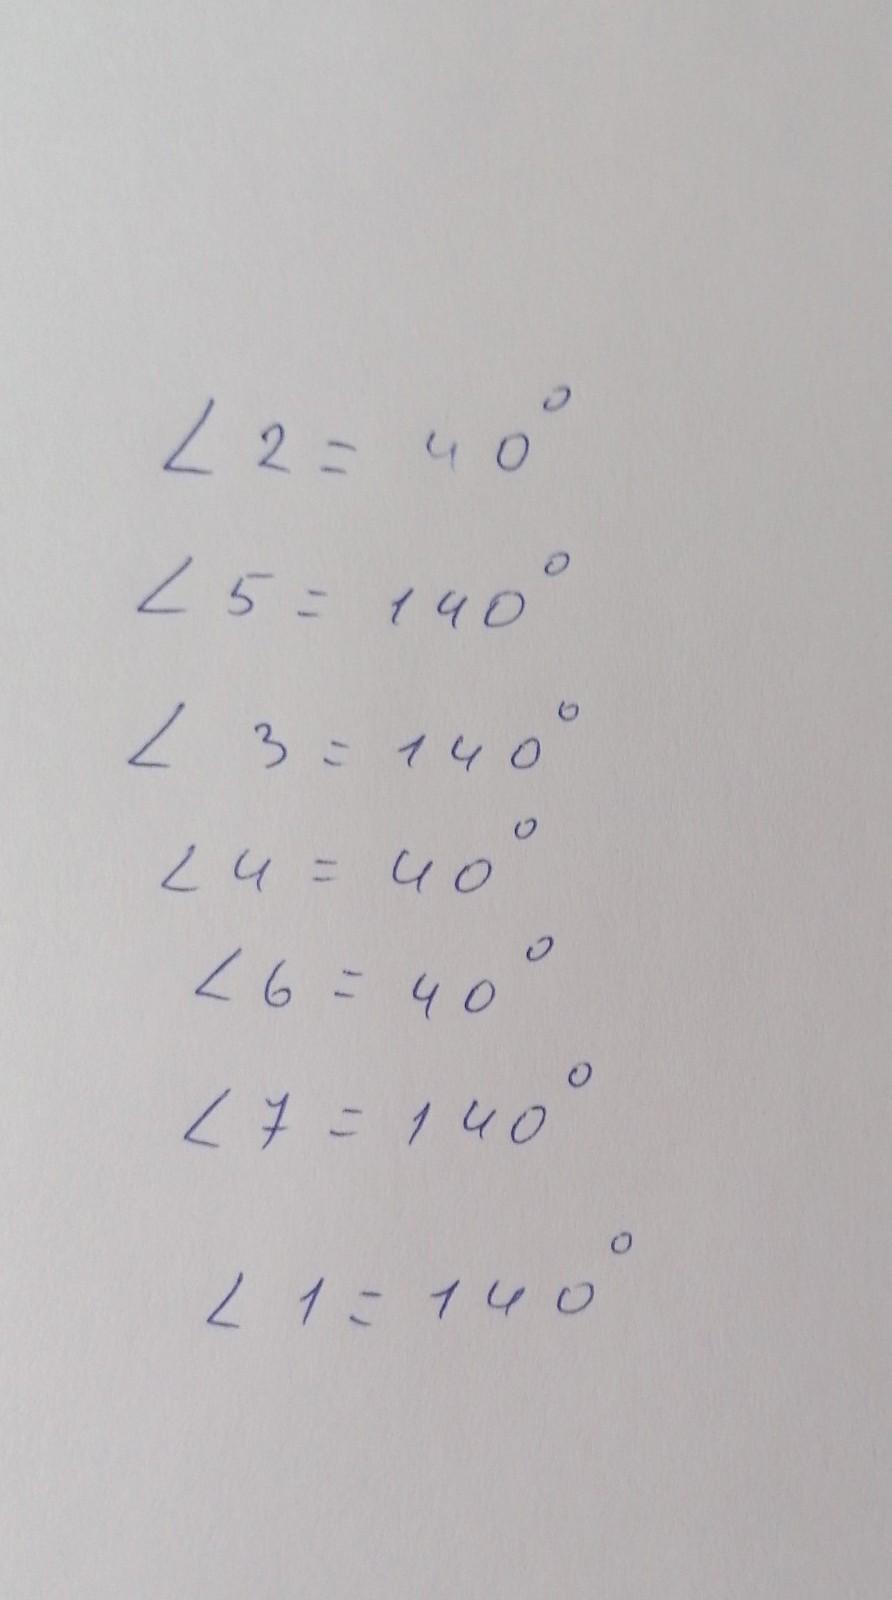 ∠ 2 = 40°
∠ 5 = 140°
∠ 3 = 140°
∠ 4 = 40°
∠ 6 = 40°
∠ 7 = 140°
∠ 1 = 140°